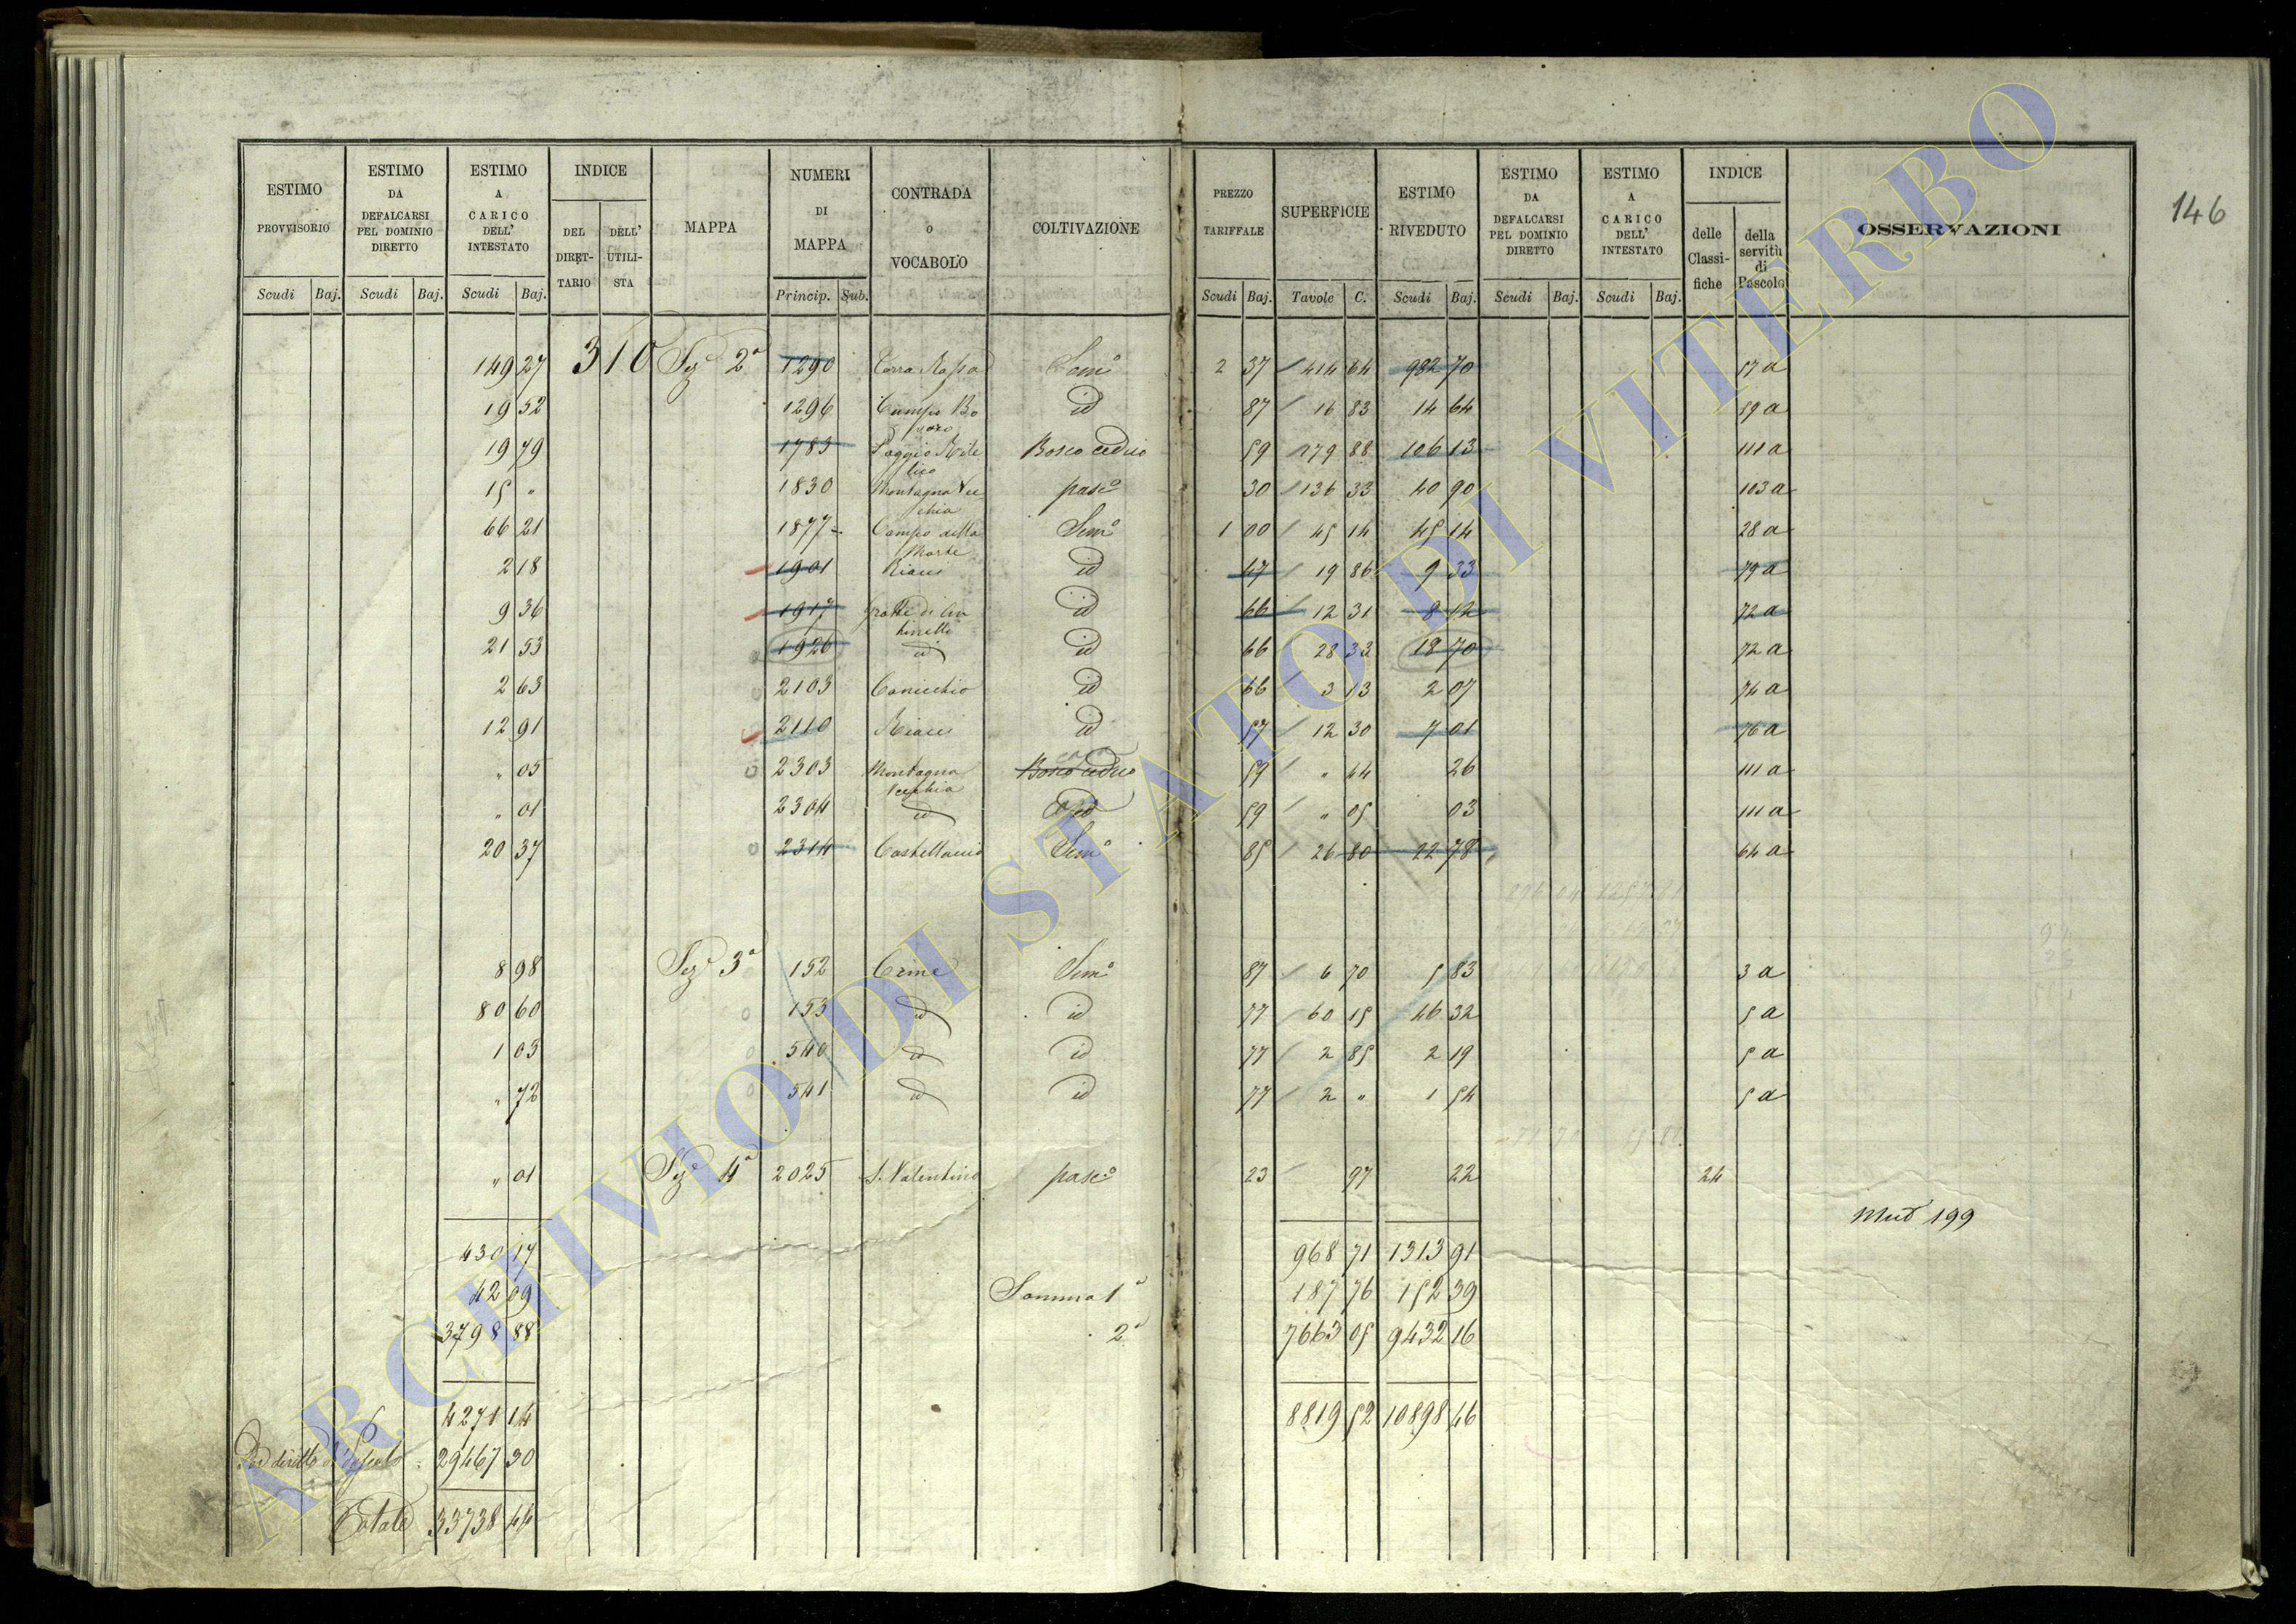 146
ESTIMO PROVVISORIO Scudi Baj.
ESTIMO DA DEFALCARSI PEL DOMINIO DIRETTO Scudi Baj.
ESTIMO A CARICO DELL' INTESTATO Scudi Baj.
INDICE DEL DIRET-TARIO DELL' UTILI-STA
MAPPA
NUMERI DI MAPPA Princip. Sub.
CONTRADA o VOCABOLO
COLTIVAZIONE
PREZZO TARIFFALE Scudi Baj.
SUPERFICIE Tavole C.
ESTIMO RIVEDUTO Scudi Baj.
ESTIMO DA DEFALCARSI PEL DOMINIO DIRETTO Scudi Baj.
ESTIMO A CARICO DELL' INTESTATO Scudi Baj.
INDICE delle Classi-fiche della servitù di Pascolo
OSSERVAZIONI
149 27 310 Sez 2a 1290 Terra Rossa Semo 2 37 414 64 982 70 57 a
19 52 1296 Campo id 87 16 83 14 64 59 a
19 79 1783 Poggio Bosco ceduo 59 179 88 106 13 111 a
15 " 1830 Montagna Vecchia pasco 30 136 33 40 90 103 a
66 21 1877 Campo della Morte Semo 1 00 45 14 45 14 28 a
2 18 1901 Riacci id 47 19 86 9 33 79 a
9 36 1917 Grotte di id 66 12 31 8 12 72 a
21 53 1926 id id 66 28 33 18 70 72 a
2 63 2103 Conicchio id 66 3 13 2 07 74 a
12 91 2110 Riacci id 57 12 30 7 01 76 a
" 05 2303 Montagna Vecchia Bosco ceduo 59 " 44 26 111 a
" 01 2304 id id 59 " 05 03 111 a
20 37 2314 Castellaccio Semo 85 26 80 22 78 64 a
8 98 Sez 3a 152 Crine Semo 87 6 70 5 83 3 a
80 60 153 id id 77 60 15 46 32 5 a
1 03 540 id id 77 2 85 2 19 5 a
" 72 541 id id 77 2 " 1 54 5 a
" 01 Sez 4a 2025 S. Valentino pasco 23 97 22 24
Mud 199
430 17 968 71 1313 91
42 09 Somma 1a 187 76 152 39
3798 88 2a 7663 05 9432 16
4271 14 8819 52 10898 46
Pel diritto di Pascolo 29467 30
Totale 33738 44
ARCHIVIO DI STATO DI VITERBO